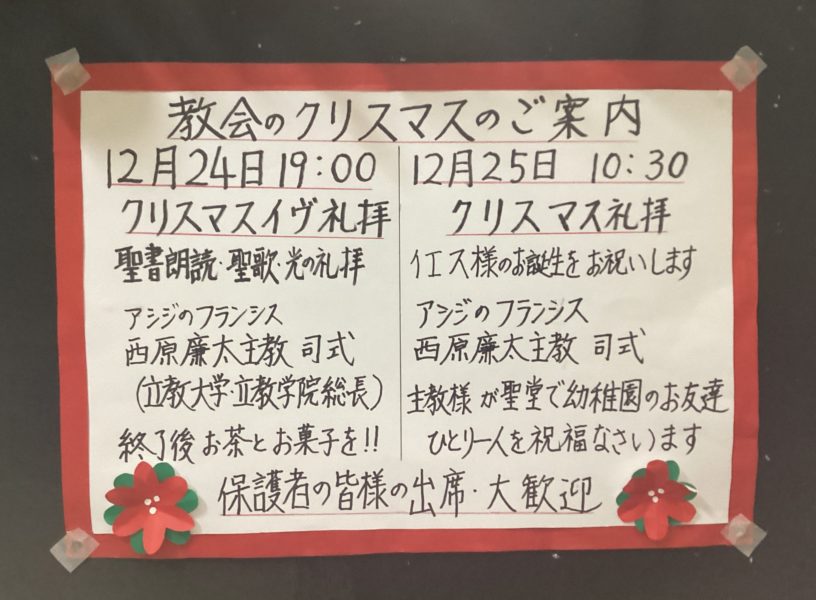 教会のクリスマスのご案内
12月24日 19:00
クリスマスイヴ礼拝
聖書朗読・聖歌・光の礼拝
アシジのフランシス
西原廉太主教 司式
(立教大学・立教学院総長)
終了後 お茶とお菓子を!!
12月25日 10:30
クリスマス礼拝
イエス様のお誕生をお祝いします
アシジのフランシス
西原廉太主教 司式
主教様が聖堂で幼稚園のお友達
ひとり一人を祝福なさいます
保護者の皆様の出席・大歓迎